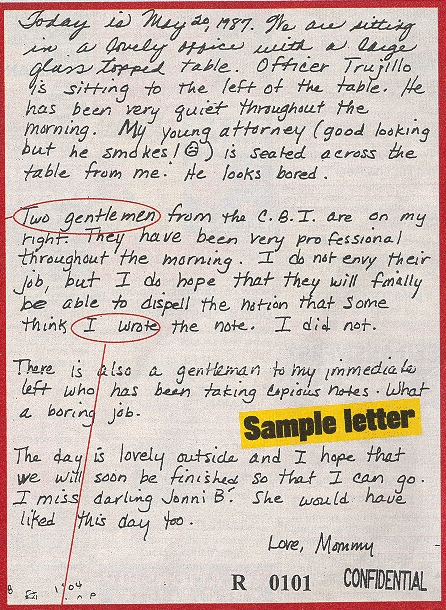 Today is May 20, 1987. We are sitting
in a lovely office with a large
glass topped table. Officer Trujillo
is sitting to the left of the table. He
has been very quiet throughout the
morning. My young attorney (good looking
but he smokes! ☹) is seated across the
table from me. He looks bored.
Two gentlemen from the C.B.I. are on my
right. They have been very professional
throughout the morning. I do not envy their
job, but I do hope that they will finally
be able to dispell the notion that some
think I wrote the note. I did not.
There is also a gentleman to my immediate
left who has been taking copious notes. What
a boring job.
Sample letter
The day is lovely outside and I hope that
we will soon be finished so that I can go.
I miss darling Jonni B. She would have
liked this day too.
Love, Mommy
R 0101 CONFIDENTIAL